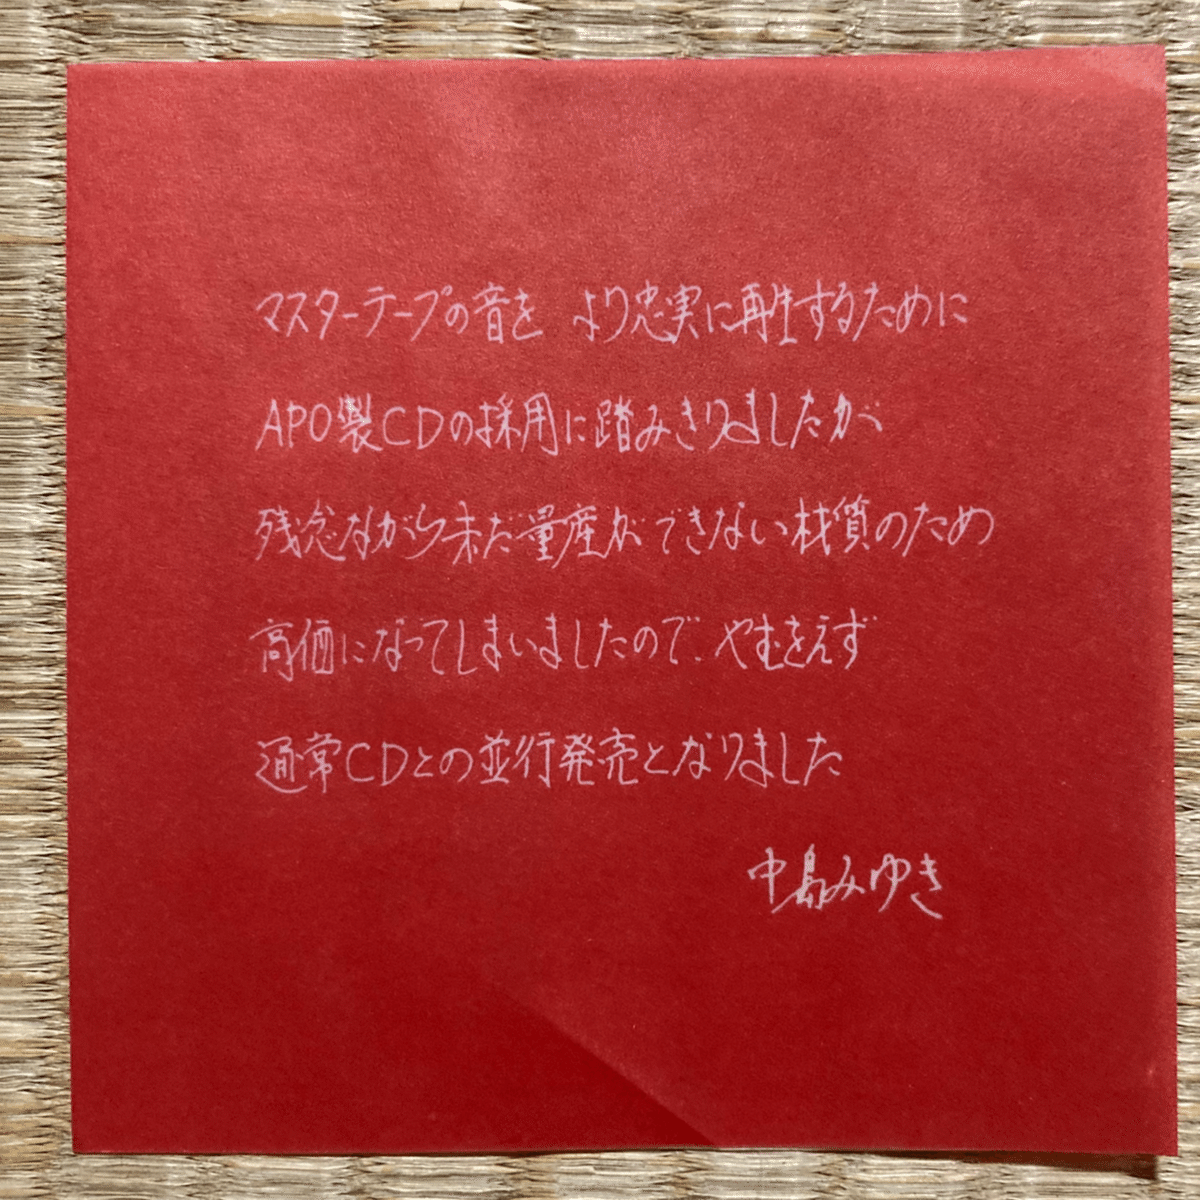 マスターテープの音を より忠実に再生するために
APO製CDの採用に踏みきりましたが
残念ながら未だ量産ができない材質のため
高価になってしまいましたので、やむをえず
通常CDとの並行発売となりました
中島みゆき